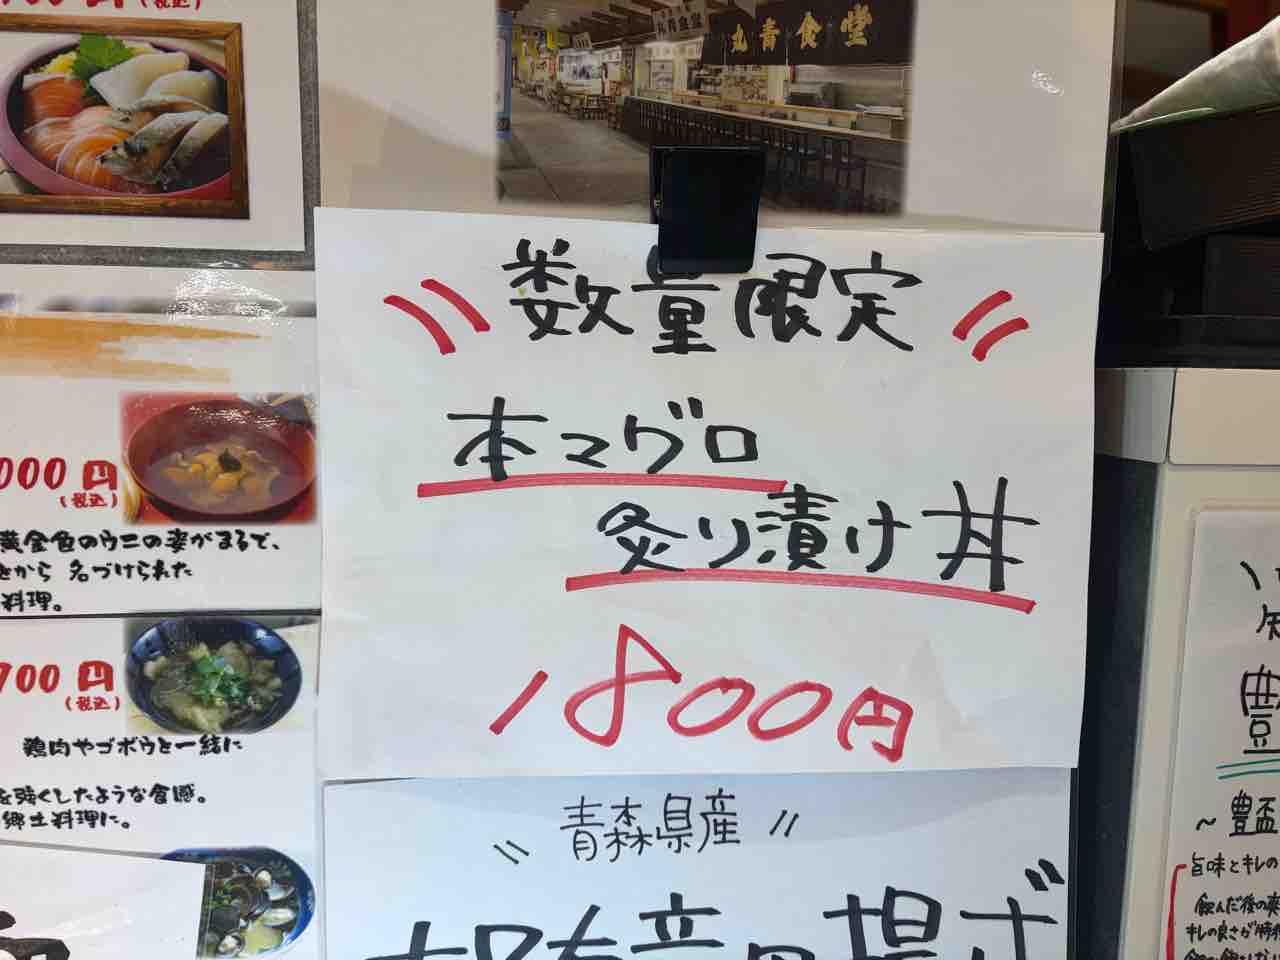 (税込)
丸青食堂
数量限定
本マグロ
炙り漬け丼
1800円
000円
(税込)
黄金色のウニの姿がまるで、
とから 名づけられた
料理。
700円
(税込)
鶏肉やゴボウと一緒に
を強くしたような食感。
郷土料理に。
青森県産
揚げ
豊
~豊盃
旨味とキレの
飲んだ後の爽
キレの良さが特徴